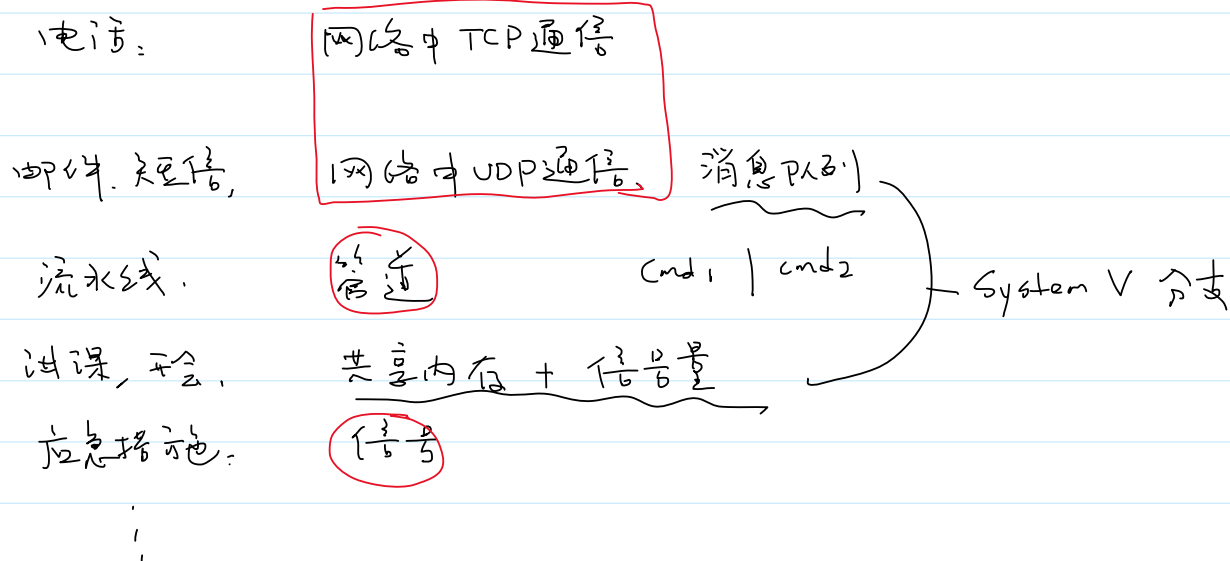 电话: 网络中TCP通信
邮件.短信, 网络中UDP通信. 消息队列
流水线. 管道 cmd1 | cmd2 System V 分支
讲课,开会. 共享内存 + 信号量
应急措施: 信号